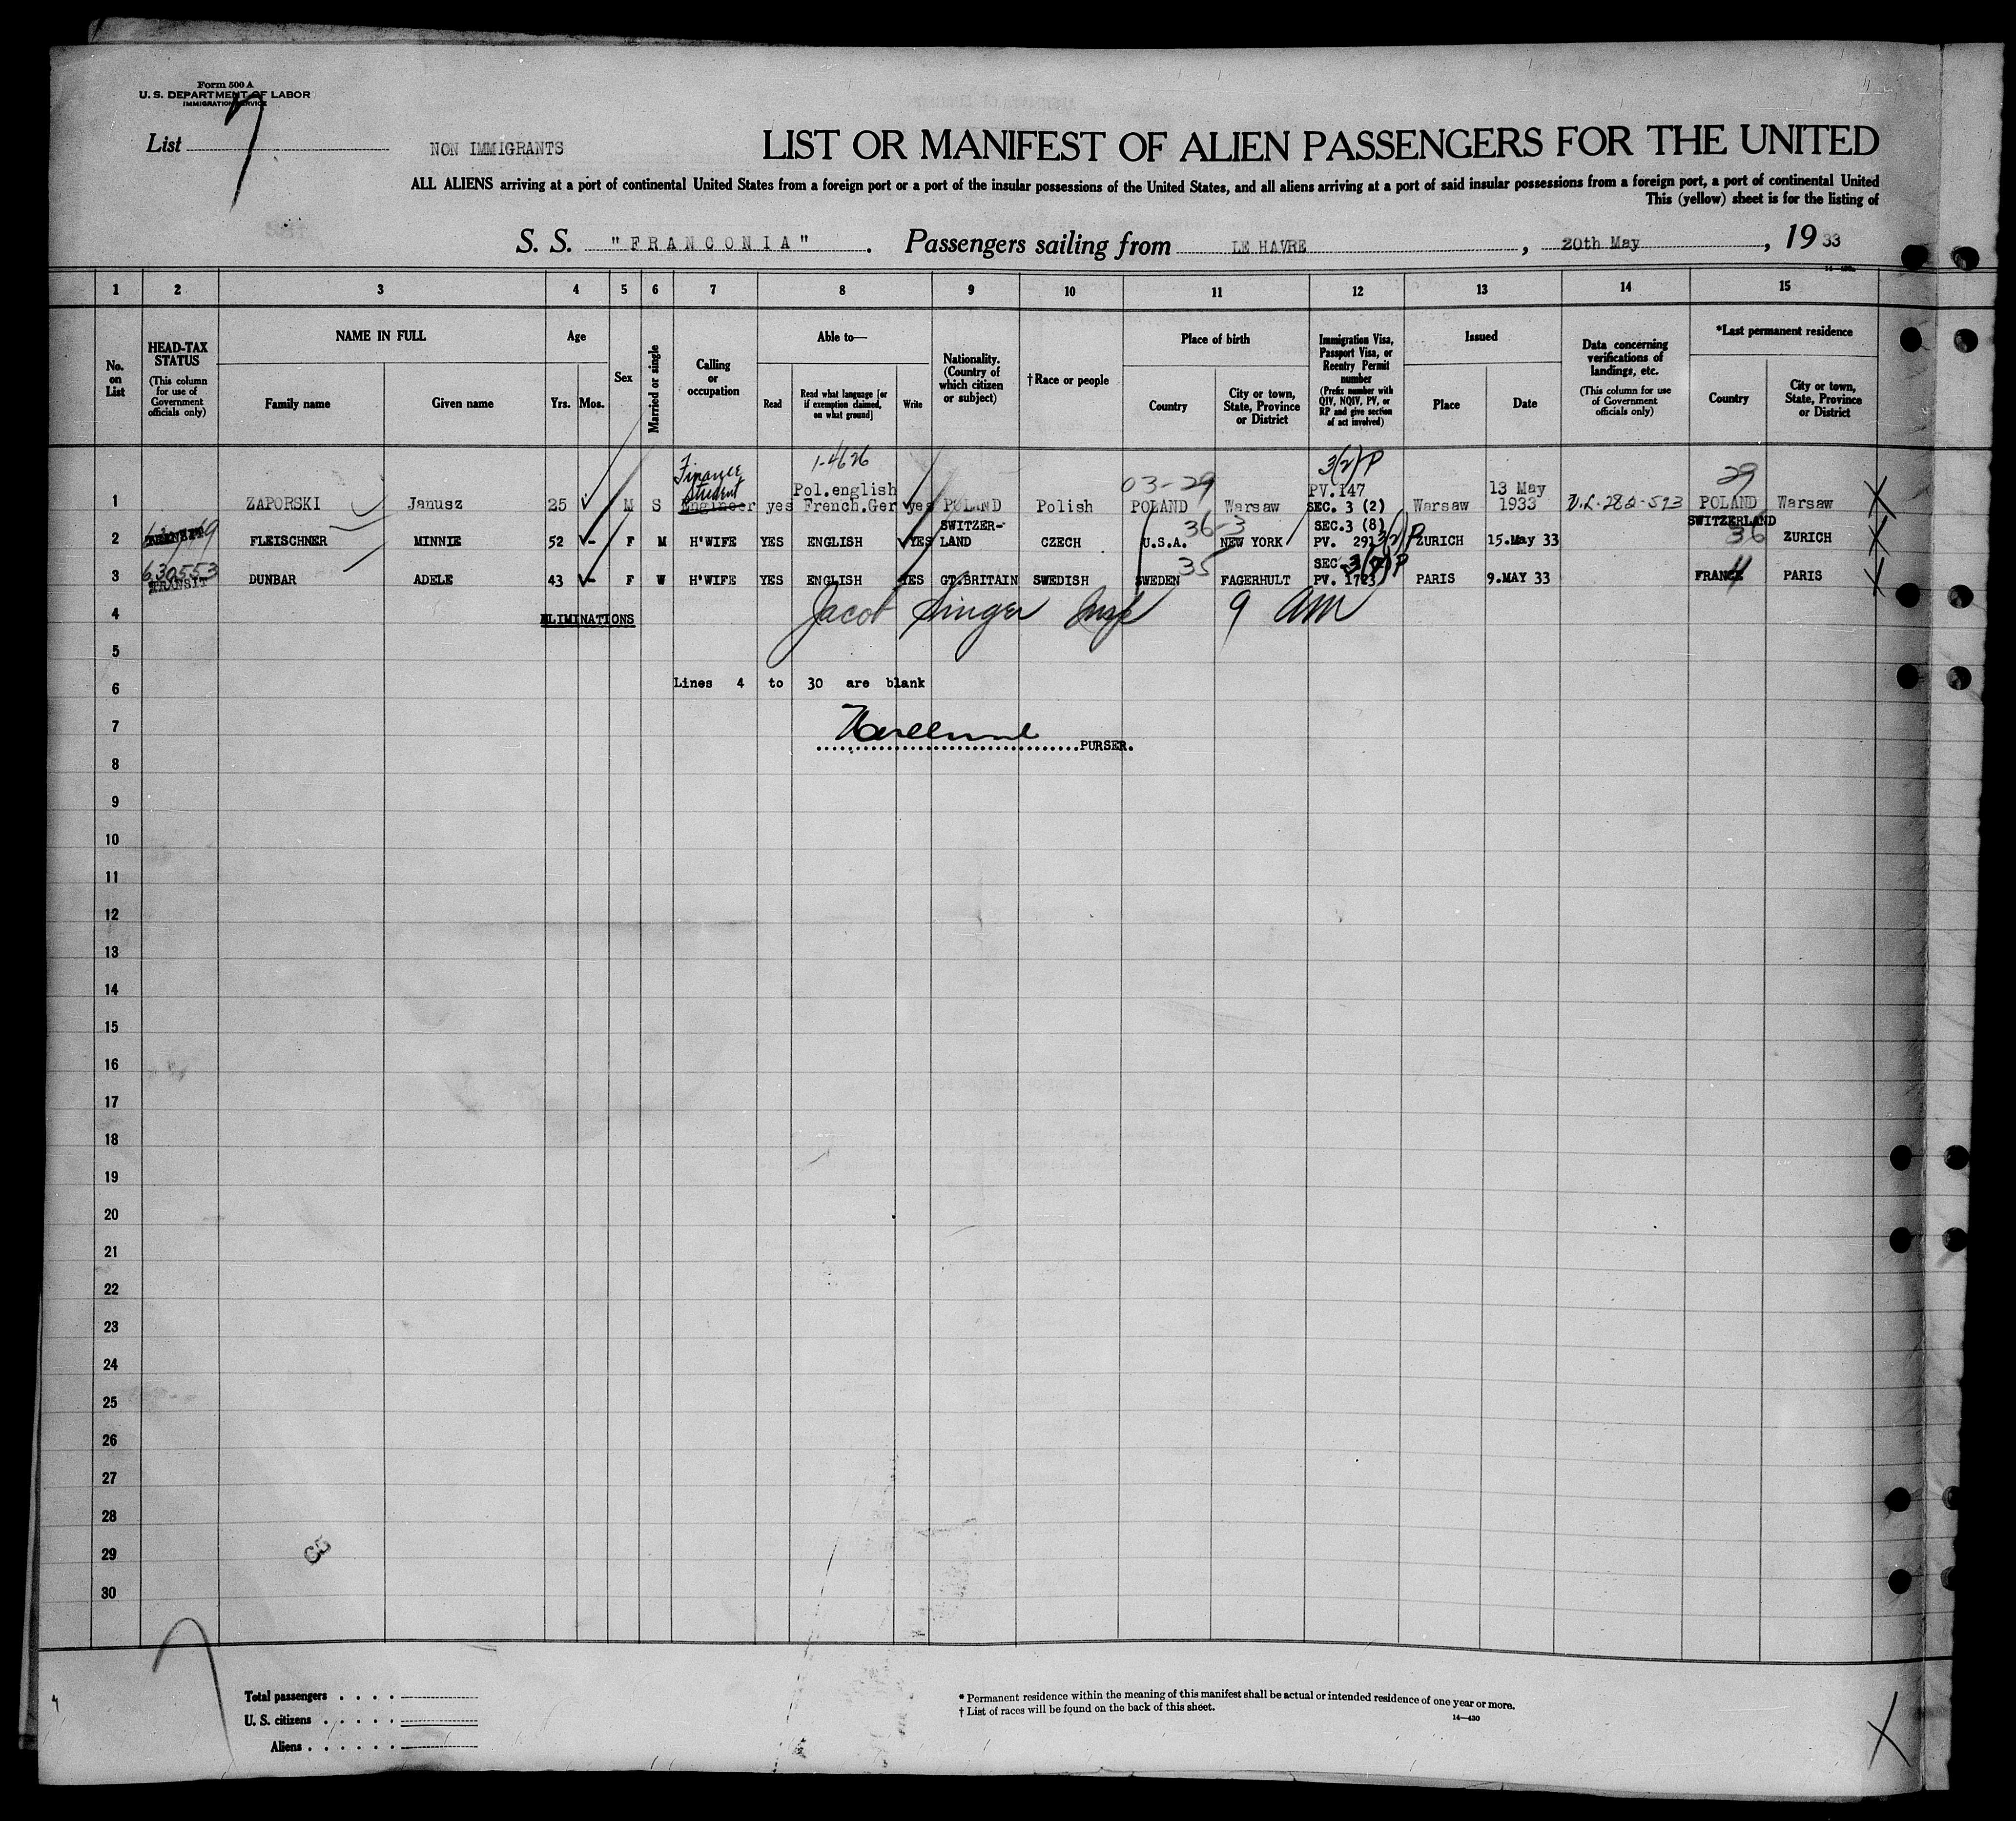 Form 500 A
U. S. DEPARTMENT OF LABOR
IMMIGRATION SERVICE
List 7
NON IMMIGRANTS
LIST OR MANIFEST OF ALIEN PASSENGERS FOR THE UNITED
ALL ALIENS arriving at a port of continental United States from a foreign port or a port of the insular possessions of the United States, and all aliens arriving at a port of said insular possessions from a foreign port, a port of continental United
This (yellow) sheet is for the listing of
S. S. "FRANCONIA". Passengers sailing from LE HAVRE, 20th May, 1933
1 2 3 4 5 6 7 8 9 10 11 12 13 14 15
No. on List
HEAD-TAX STATUS (This column for use of Government officials only)
NAME IN FULL
Family name
Given name
Age
Yrs. Mos.
Sex
Married or single
Calling or occupation
Able to—
Read
Read what language [or if exemption claimed, on what ground]
Write
Nationality. (Country of which citizen or subject)
†Race or people
Place of birth
Country
City or town, State, Province or District
Immigration Visa, Passport Visa, or Reentry Permit number (Prefix number with QIV, NQIV, PV, or RP and give section of act involved)
Issued
Place
Date
Data concerning verifications of landings, etc. (This column for use of Government officials only)
*Last permanent residence
Country
City or town, State, Province or District
Finance Student 1-4626 03-29 3(2)P 29
1 ZAPORSKI Janusz 25 M S Engineer yes Pol.english French.Ger yes POLAND Polish POLAND Warsaw PV.147 SEC. 3 (2) Warsaw 13 May 1933 POLAND Warsaw
2 TRANSIT FLEISCHNER MINNIE 52 - F M H'WIFE YES ENGLISH YES SWITZER-LAND CZECH U.S.A. 36-3 NEW YORK SEC.3 (8) PV. 291 3(2)P ZURICH 15.May 33 SWITZERLAND 36 ZURICH
3 630553 TRANSIT DUNBAR ADELE 43 - F W H'WIFE YES ENGLISH YES GT.BRITAIN SWEDISH SWEDEN 35 FAGERHULT SEC. 3(2)P PV. 1723 PARIS 9.MAY 33 FRANCE PARIS
4 ELIMINATIONS Jacob Singer Insp 9 AM
5
6 Lines 4 to 30 are blank
7
PURSER.
8
9
10
11
12
13
14
15
16
17
18
19
20
21
22
23
24
25
26
27
28
29
30
Total passengers . . . .
U. S. citizens . . . . .
Aliens . . . . . .
* Permanent residence within the meaning of this manifest shall be actual or intended residence of one year or more.
† List of races will be found on the back of this sheet.
14—430